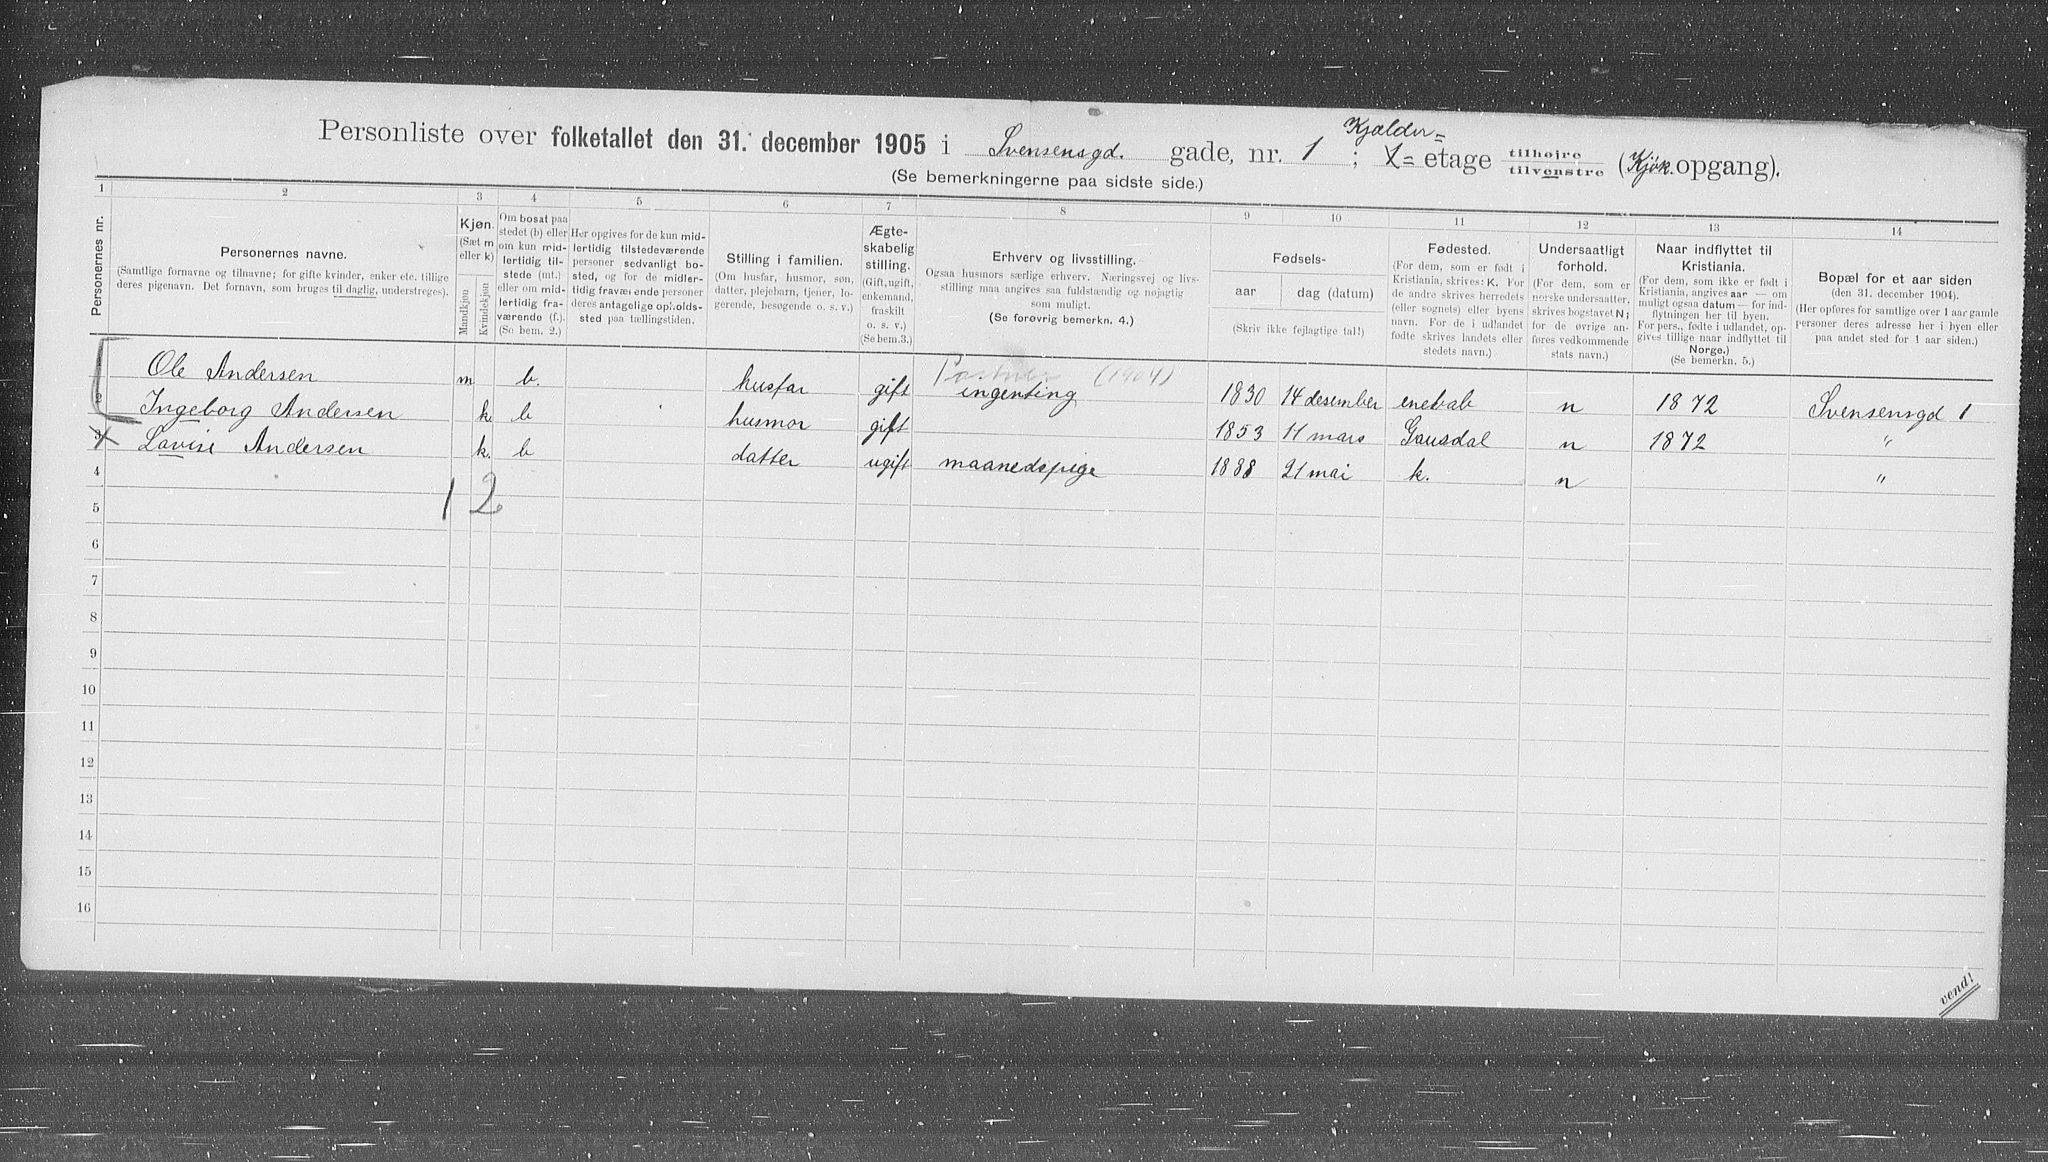 Personliste over folketallet den 31. december 1905 i Svensensgd. gade, nr. 1 ; Kjælder= 1= etage tilhøjre tilvenstre (Kjøk. opgang).
(Se bemerkningerne paa sidste side.)
1 2 3 4 5 6 7 8 9 10 11 12 13 14
Personernes nr.
Personernes navne.
(Samtlige fornavne og tilnavne; for gifte kvinder, enker etc. tillige
deres pigenavn. Det fornavn, som bruges til daglig, understreges).
Kjøn.
(Sæt m
eller k)
Mandkjøn
Kvindekjøn
Om bosat paa
stedet (b) eller
om kun mid-
lertidig til-
stede (mt.)
eller om mid-
lertidig fra-
værende (f.).
(Se bem. 2.)
Her opgives for de kun mid-
lertidig tilstedeværende
personer sedvanligt bo-
sted, og for de midler-
tidig fraværende personer
deres antagelige opholds-
sted paa tællingstiden.
Stilling i familien.
(Om husfar, husmor, søn,
datter, plejebarn, tjener, lo-
gerende, besøgende o. s. v.)
Ægte-
skabelig
stilling.
(Gift, ugift,
enkemand,
fraskilt
o. s. v.)
(Se bem.3.)
Erhverv og livsstilling.
Ogsaa husmors særlige erhverv. Næringsvej og livs-
stilling maa angives saa fuldstændig og nøjagtig
som muligt.
(Se forøvrig bemerkn. 4.)
Fødsels-
aar dag (datum)
(Skriv ikke fejlagtige tal!)
Fødested.
(For dem, som er født i
Kristiania, skrives: K. For
de andre skrives herredets
(eller sognets) eller byens
navn. For de i udlandet
fødte skrives landets eller
stedets navn.)
Undersaatligt
forhold.
(For dem, som er
norske undersaatter,
skrives bogstavet N;
for de øvrige an-
føres vedkommende
stats navn.)
Naar indflyttet til
Kristiania.
(For dem, som ikke er født i
Kristiania, angives aar — om
muligt ogsaa datum — for ind-
flytningen her til byen.
For pers., fødte i udlandet, op-
gives tillige naar indflyttet til
Norge.)
(Se bemerkn. 5.)
Bopæl for et aar siden
(den 31. december 1904).
(Her opføres for samtlige over 1 aar gamle
personer deres adresse her i byen eller
paa andet sted for 1 aar siden.)
Ole Andersen m b. husfar gift (1904) ingenting 1830 14 desember enebab n 1872 Svensensgd 1
2 Ingeborg Andersen k. b husmor gift 1853 11 mars Gausdal n 1872 "
3 Lovise Andersen k. b datter ugift maanedspige 1888 21 mai k. n "
4
1 2
5
6
7
8
9
10
11
12
13
14
15
16
vend!